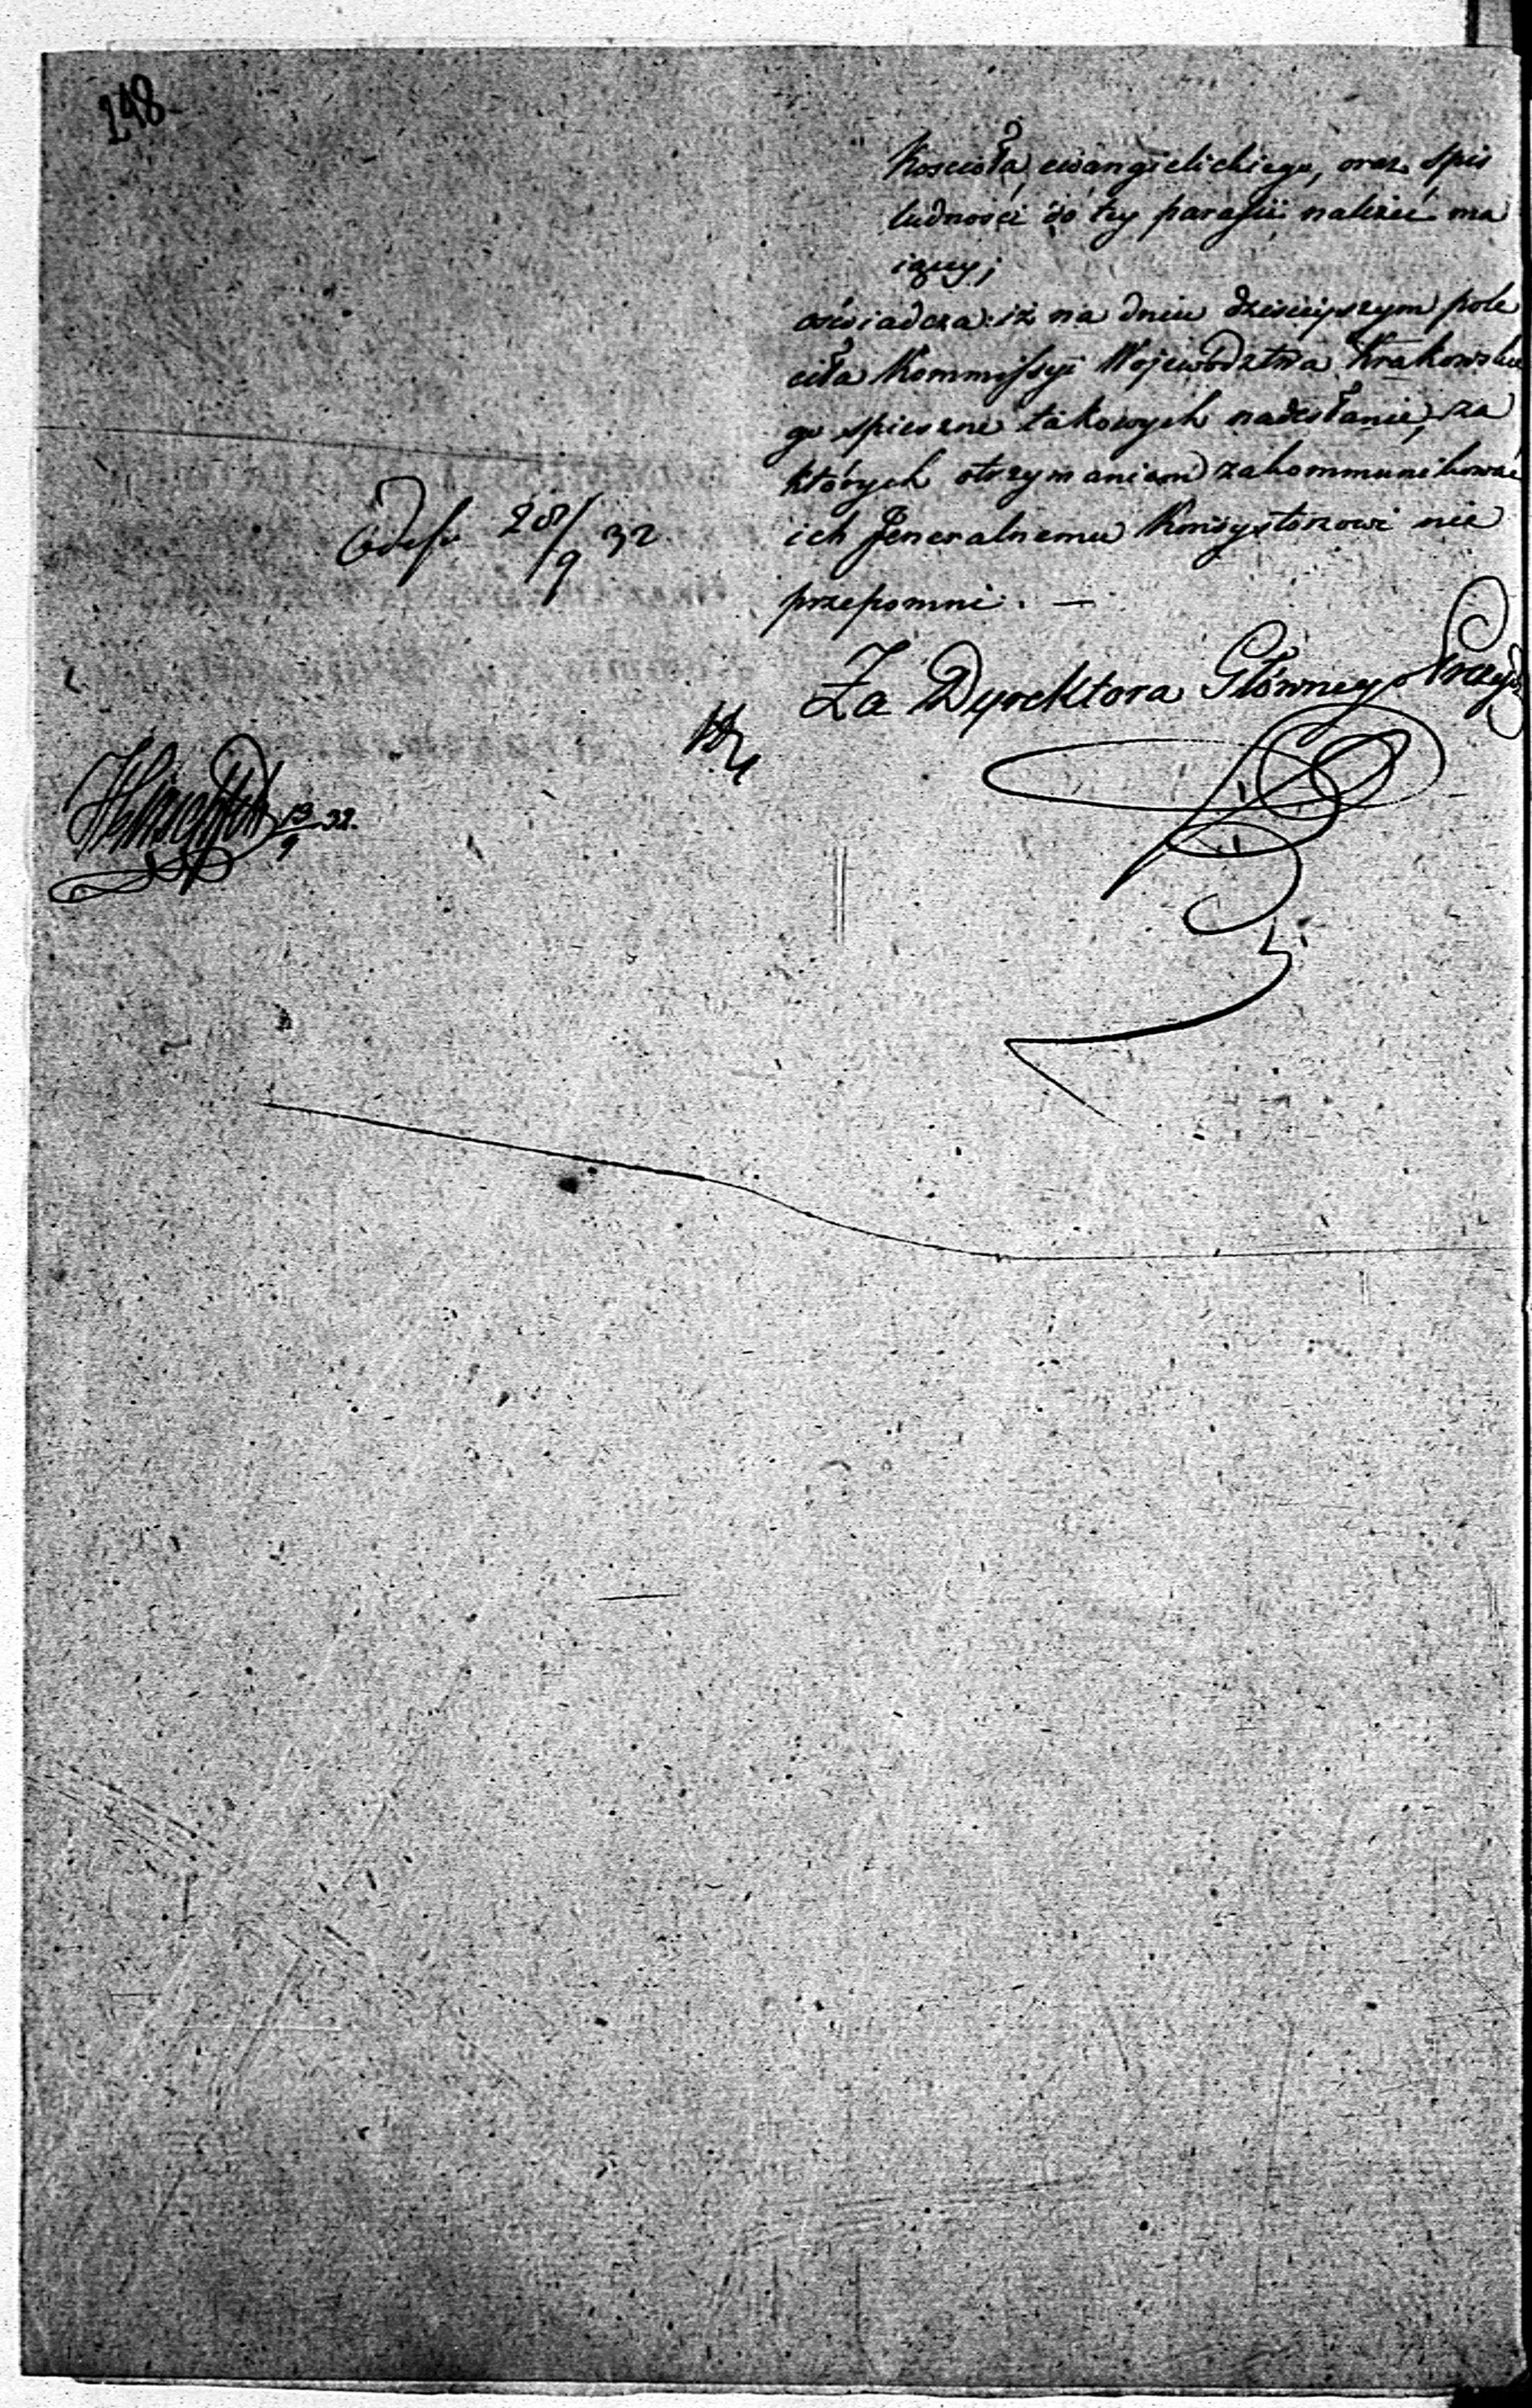 148
Kościoła ewangielickiego, oraz spis
ludności do tey parafii należeć ma
iącey;
oświadcza: iż na dniu dzisieyszym pole
ciła Kommissyi Województwa Krakowskie
go spieszne takowych nadesłanie, za
których otrzymaniem zakommunikować
ich Jeneralnemu Konsystorzowi nie
przepomni. —
28/9 32
Za Dyrektora Głównego
13/9 32.